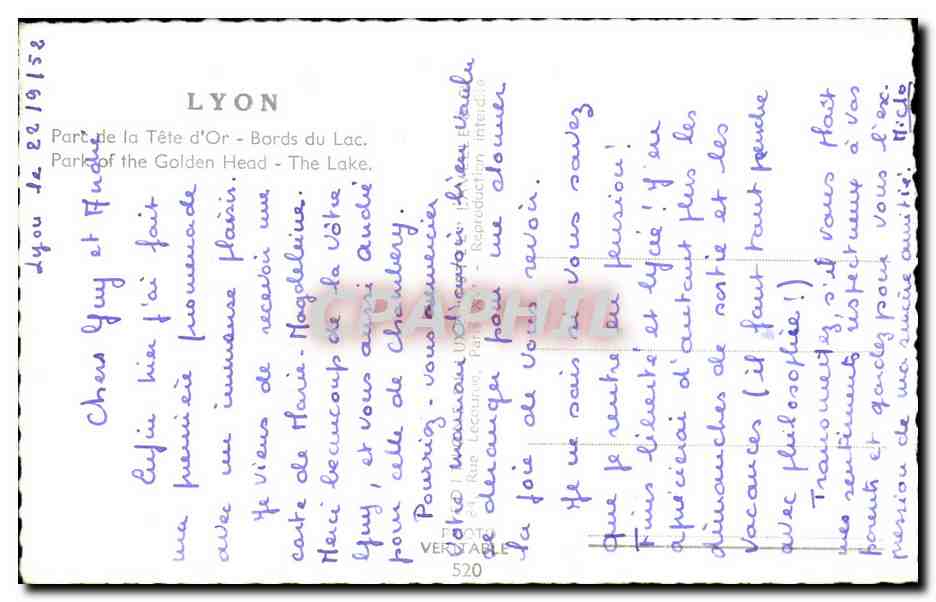 LYON
Parc de la Tête d'Or - Bords du Lac.
Park of the Golden Head - The Lake.
Lyon le 22/9/52
Chers Guy et André
Enfin hier j'ai fait
ma première promenade
avec un immense plaisir.
Je viens de recevoir une
carte de Marie-Magdeleine.
Merci beaucoups de la vôtre
Guy, et vous aussi André
pour celle de Chambéry.
Pourriez-vous remercier
votre maman d'avoir bien voulu
se déranger pour me donner
la joie de vous revoir.
Je ne sais si vous savez
que je rentre en pension!
Finis liberté et lycée! J'en
aprécierai d'autant plus les
dimanches de sortie et les
vacances (il faut tout prendre
avec philosophie!)
Transmettez, s'il vous plaît
mes sentiments respectueux à vos
parents et gardez pour vous l'ex.
pression de ma sincère amitié. Miclo
24, Rue Lecourbe, Paris - Reproduction interdite
PHOTO
VERITABLE
520
CPAPHIL